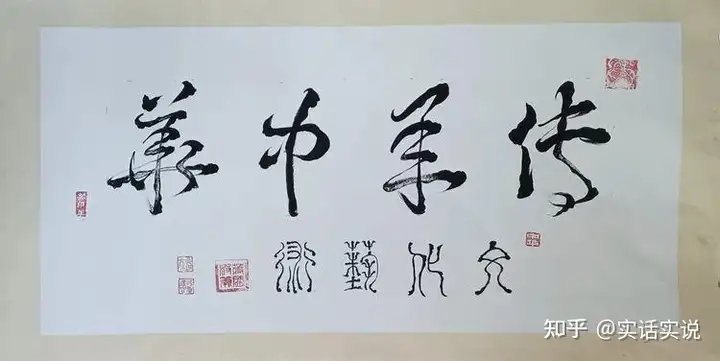 传承中華
文化藝術
知乎 @实话实说